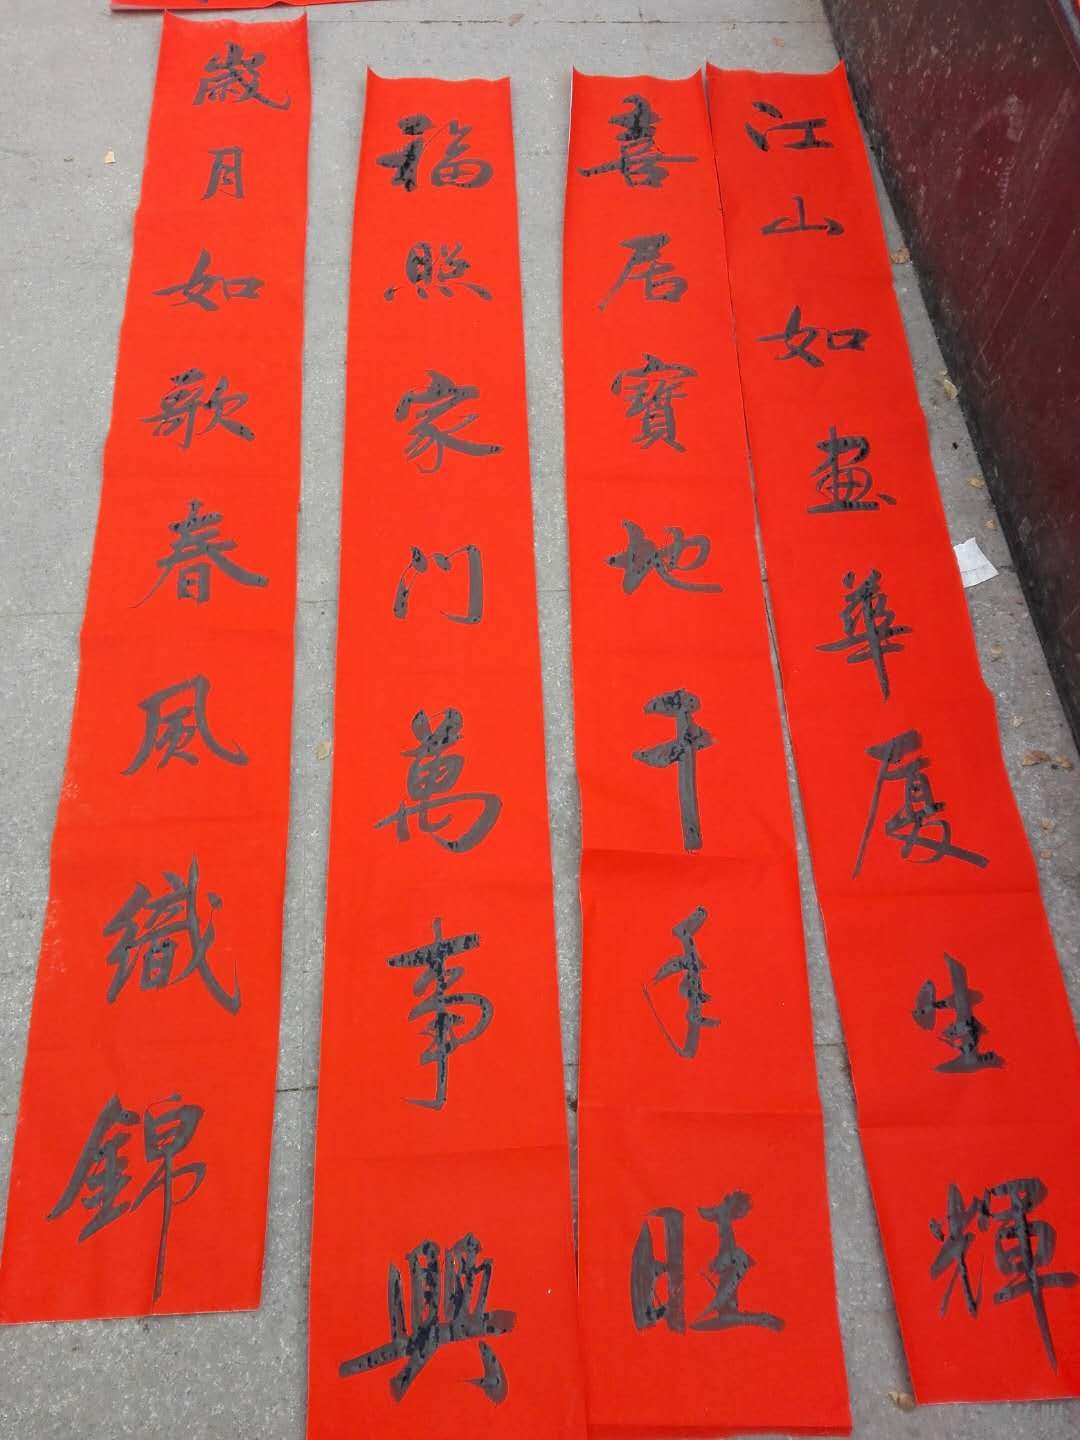 江山如畫華厦生輝
喜居寶地千年旺
福照家門萬事興
歲月如歌春風織錦